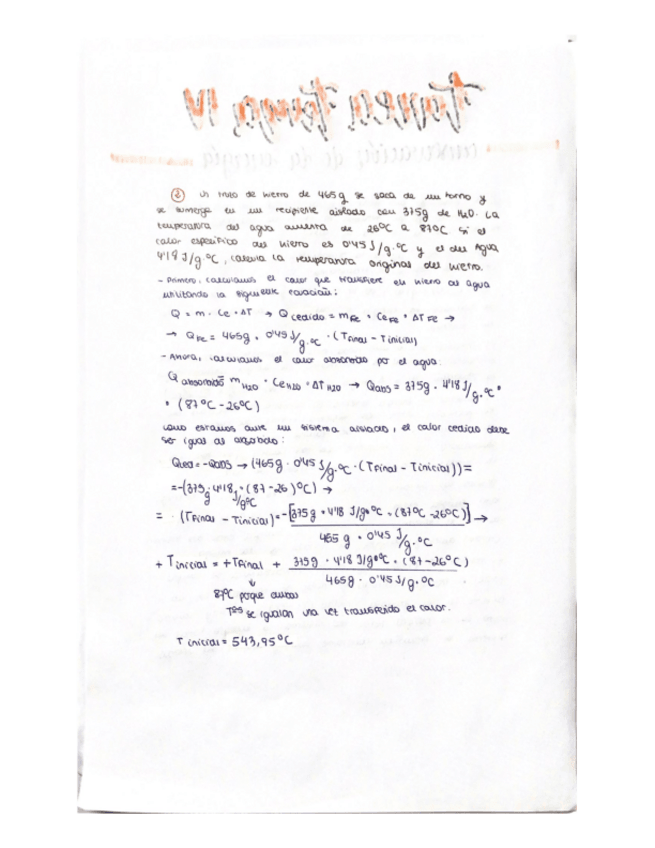 Tarea Tema IV
conservación de la energía
② Un trozo de hierro de 465 g se saca de un horno y
se sumerge en un recipiente aislado con 375g de H2O. La
temperatura del agua aumenta de 26ºC a 87ºC si el
calor específico del hierro es 0'45 J/g.ºC y el del Agua
4'18 J/g.ºC, calcula la temperatura original del hierro.
- Primero, calculamos el calor que transfiere el hierro al agua
utilizando la siguiente ecuación:
Q = m · Ce · ΔT → Q cedido = mFe · CeFe · ΔT Fe →
→ QFe = 465g · 0'45 J/g.ºC · (Tfinal - Tinicial)
- Ahora, calculamos el calor absorbido por el agua.
Q absorbido = mH2O · CeH2O · ΔT H2O → Qabs = 375g · 4'18 J/g.ºC ·
· (87ºC - 26ºC)
Como estamos ante un sistema aislado, el calor cedido debe
ser igual al
Qced = -Qabs → (465g · 0'45 J/g.ºC · (Tfinal - Tinicial)) =
= -(375g · 4'18 J/gºC · (87 - 26)ºC) →
= · (Tfinal - Tinicial) = -[375g · 4'18 J/gºC · (87ºC - 26ºC)] →
465 g · 0'45 J/g.ºC
+ Tinicial = +Tfinal + 375g · 4'18 J/gºC · (87 - 26ºC)
465g · 0'45 J/g.ºC
↓
87ºC porque ambas
Tªs se igualan una vez transferido el calor.
T inicial = 543,95ºC